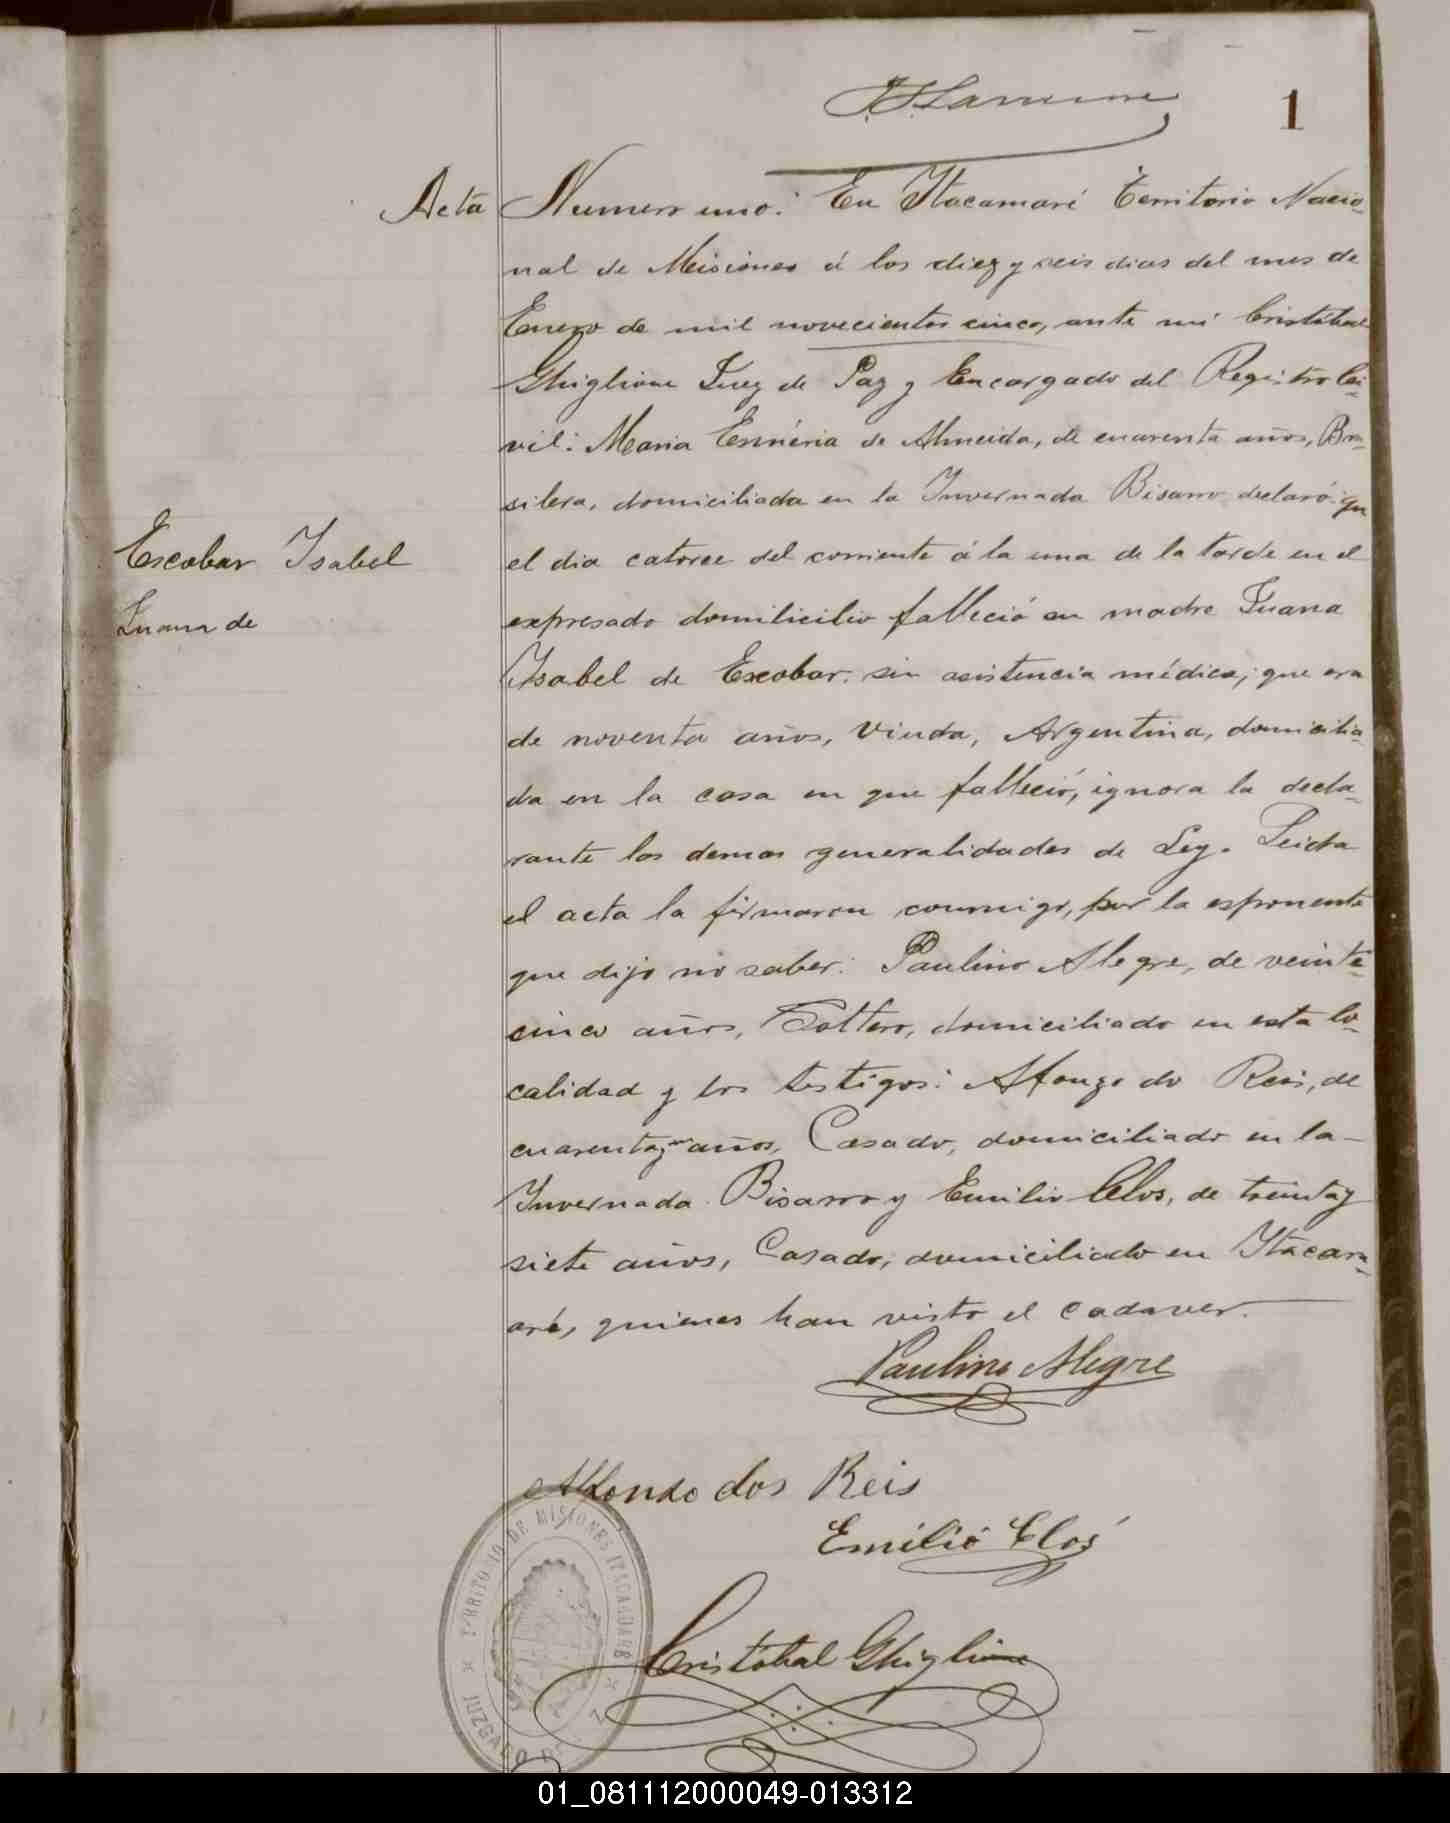 1
Acta Numero uno: En Itacaruaré Territorio Nacio-
nal de Misiones á los diez y seis dias del mes de
Enero de mil novecientos cinco, ante mi Cristóbal
Ghiglione Juez de Paz y Encargado del Registro Ci-
vil: Maria de Almeida, de cuarenta años, Bra-
silera, domiciliada en la Invernada Bisarro declaró: que
el dia catorce del corriente á la una de la tarde en el
expresado domilicilio falleció su madre Juana
Isabel de Escobar. sin asistencia médica; que era
de noventa años, Viuda, Argentina, domicilia-
da en la casa en que falleció, ignora la decla-
rante las demas generalidades de Ley. Leida
el acta la firmaron conmigo, por la esponente
que dijo no saber: Paulino Alegre, de veinte-
cinco años, Soltero, domiciliado en esta lo-
calidad y los testigos: Afonzo do Reis, de
cuarenta años, Casado, domiciliado en la
Invernada Bisarro y Emilio Clos, de treinta y
siete años, Casado, domiciliado en Itacaru-
aré, quienes han visto el cadaver.
Escobar Isabel
Juana de
Paulino Alegre
Afonso dos Reis
Emilio Clos
Cristóbal Ghiglione
JUZGADO DE TERRITORIO DE MISIONES ITACARUARE
01_081112000049-013312